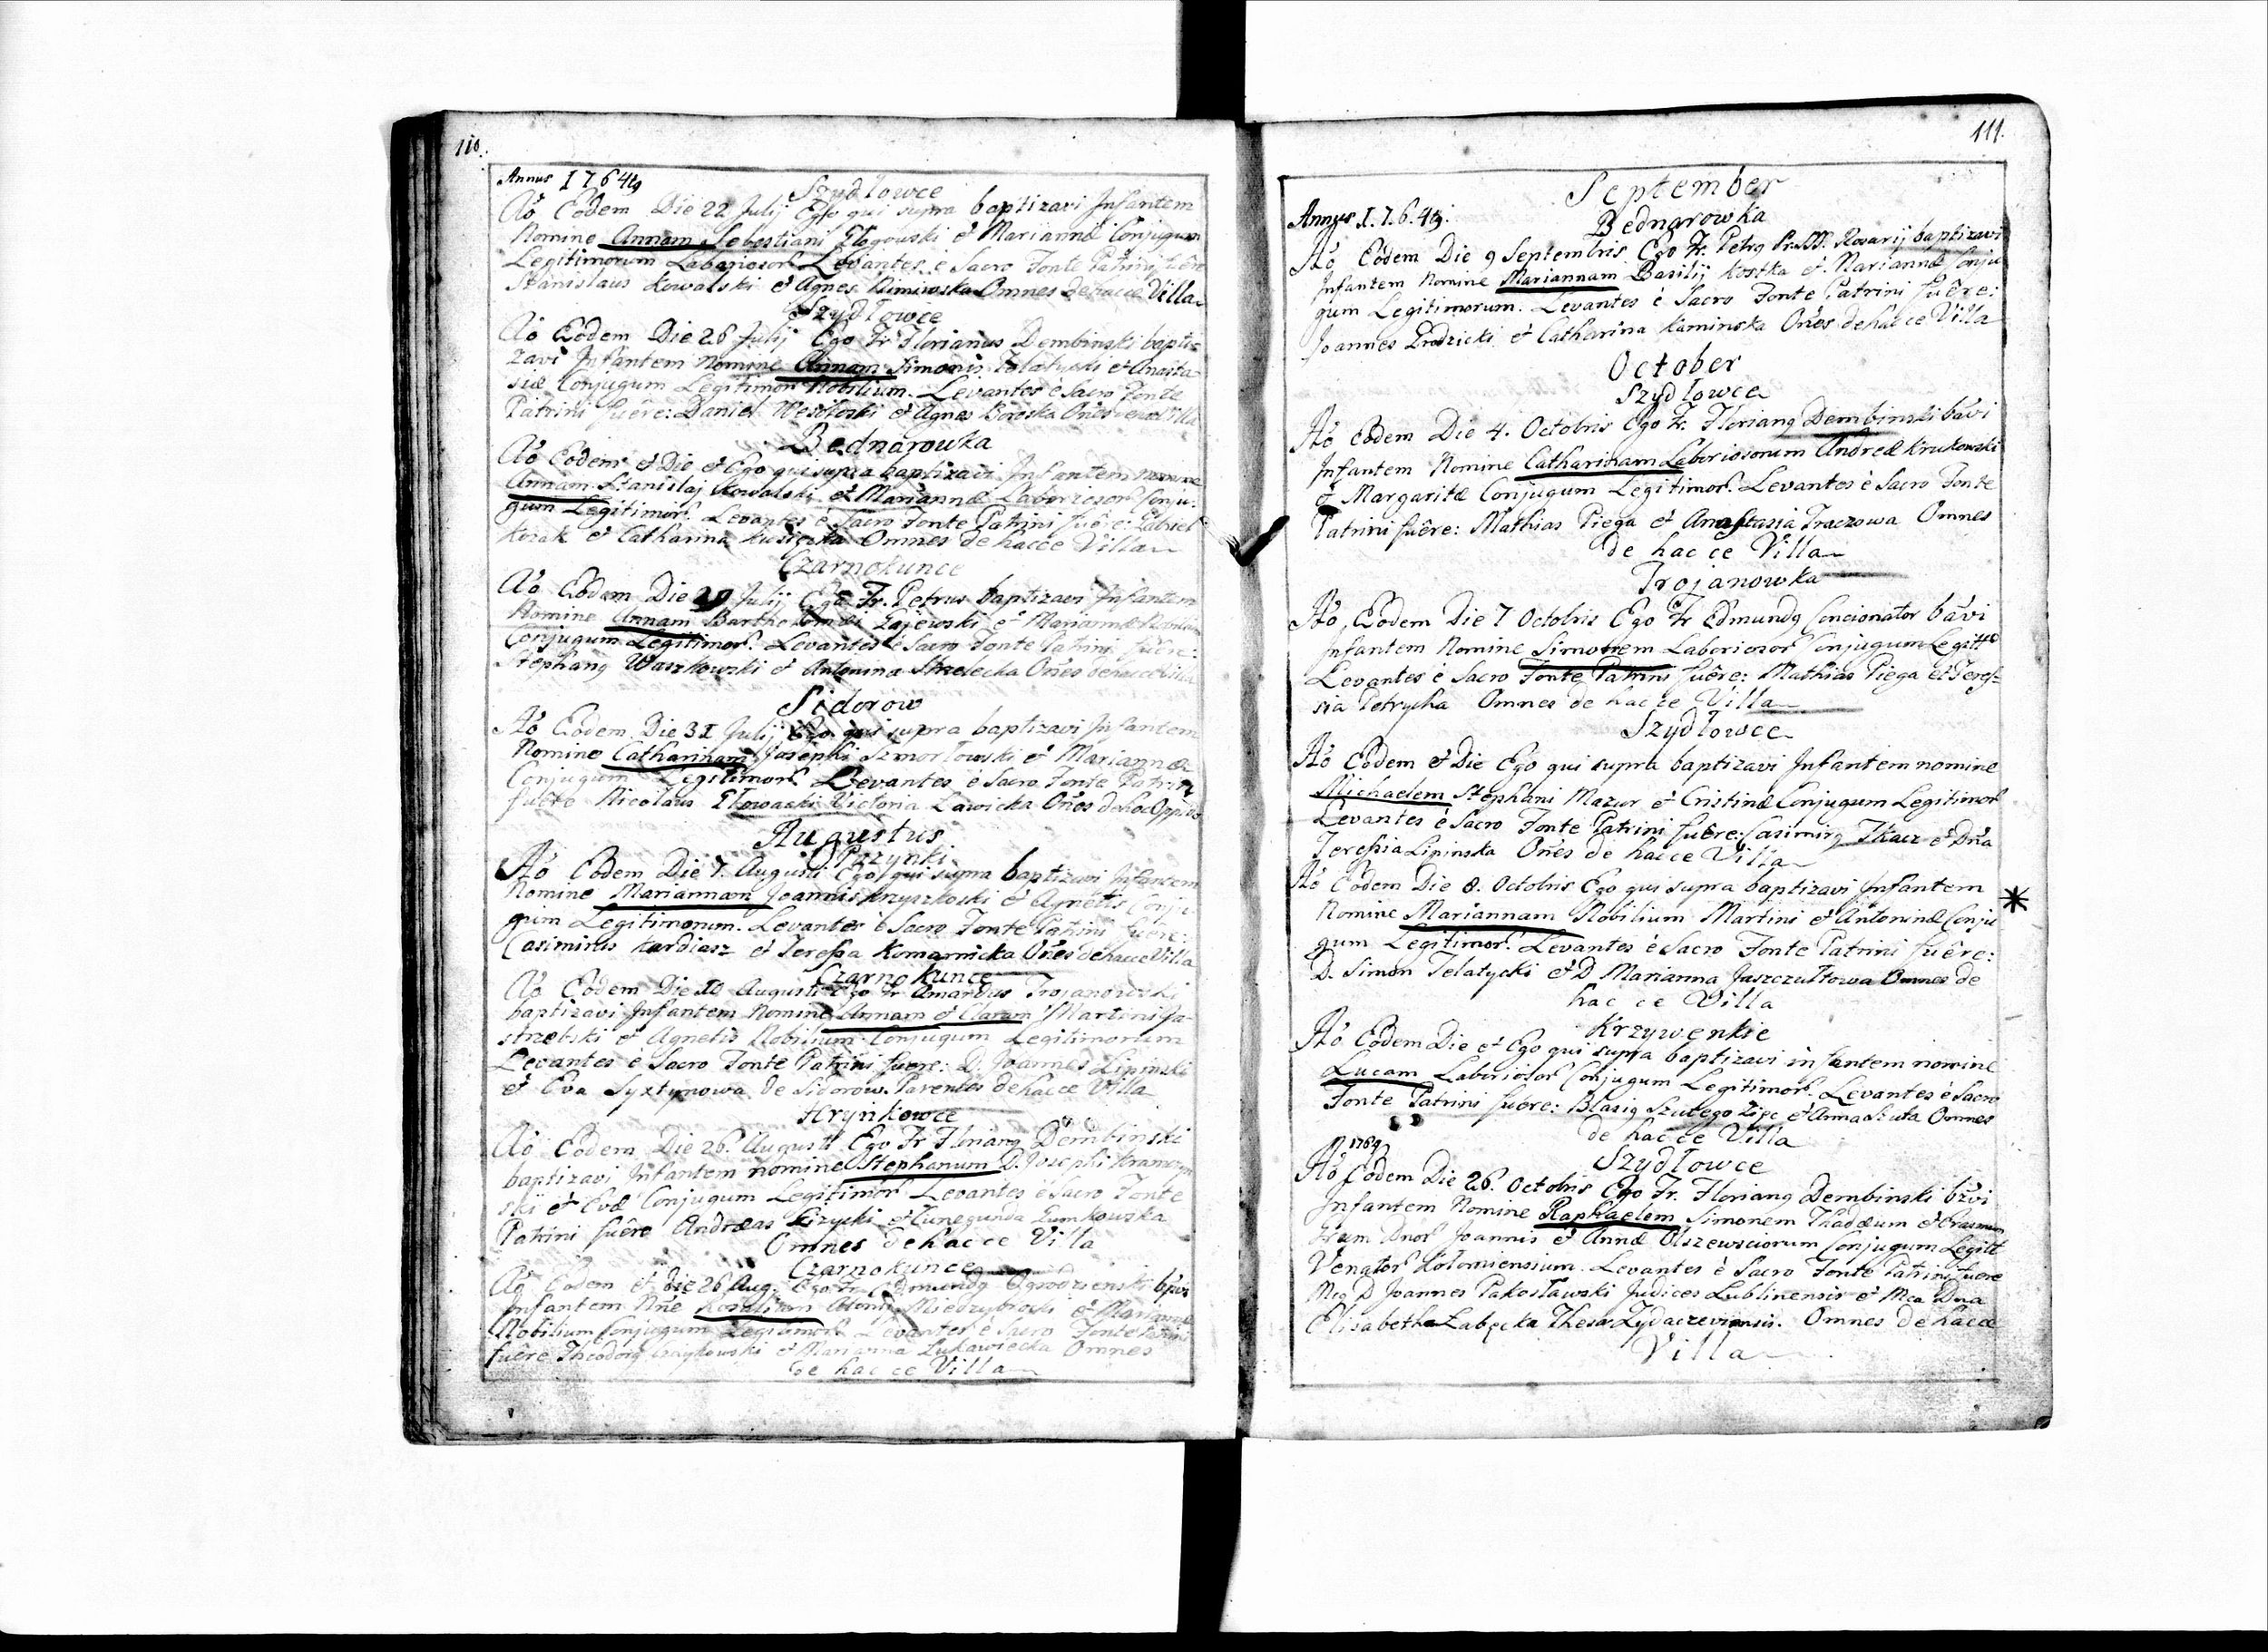 110.
Annus 1764tg
Szydlowce
Ao Eodem Die 22 Julij Ego qui supra baptizavi Infantem
Nomine Annam Sebastiani Glogowski et Mariannæ Conjugum
Legitimorum Laboriosor. Levantes è Sacro Fonte Patrini fuêre
Stanislaus Kowalski et Agnes Omnes de hacce Villa
Szydlowce
Ao Eodem Die 26 Julij Ego Fr Florianus Dembinski bapti-
zavi Infantem Nomine Annam Simonis Telatycki et Anasta-
siæ Conjugum Legitimor Nobilium. Levantes è Sacro Fonte
Patrini fuêre: Daniel et Agnes Oñes de hacce Villa
Bednarowka
Ao Eodem et Die et Ego qui supra baptizavi Infantem nomine
Annam Stanislaj Kowalski et Mariannæ Laboriosor Conju-
gum Legitimor. Levantes è Sacro Fonte Patrini fuêre: Gabriel
Kozak et Catharina Omnes de hacce Villa
Czarnokunce
Ao Eodem Die 29 Julij Ego Fr. Petrus baptizavi Infantem
Nomine Annam Bartholomei Gajewski et Mariannæ Nobilium
Conjugum Legitimor. Levantes è Sacro Fonte Patrini fuêre:
Stephang Waszkowski et Antonina Strzelecka Oñes de hacce Villa
Sidorow
Ao Eodem Die 31 Julij Ego qui supra baptizavi Infantem
Nomine Catharinam Josephi et Mariannæ
Conjugum Legitimor. Levantes è Sacro Fonte Patrini
fuêre Nicolaus Victoria Lawicka Oñes de hoc Oppido
Augustus
Ao Eodem Die 7. Augusti Ego qui supra baptizavi Infantem
Nomine Mariannam Joannis Krzyszkoski et Agnetis Conju-
gum Legitimorum. Levantes è Sacro Fonte Patrini fuêre:
Casimirus Kardiasz et Teressa Komarnicka Oñes de hacce Villa
Czarnokunce
Ao Eodem Die 10 Augusti Ego Fr Amandus Trojanowski
baptizavi Infantem Nomine Annam et Claram Martini Ja-
strzebski et Agnetis Nobilium Conjugum Legitimorum
Levantes è Sacro Fonte Patrini fuêre: D. Joannes Lipinski
et Eva Syxtynowa de Sidorow. Parentes de hacce Villa
Hrynkowce
Ao Eodem Die 26. Augusti Ego Fr Floriang Dembinski
baptizavi Infantem nomine Stephanum D. Josephi
ski et Evæ Conjugum Legitimor Levantes è Sacro Fonte
Patrini fuêre Andræas Lizycki et Cunegunda Gumkowska
Omnes de hacce Villa
Czarnokunce
Ao Eodem et Die 26 Aug. Ego Fr Edmundg bpvi
Infantem Nne et Mariannæ
Nobilium Conjugum Legitimor Levantes è Sacro Fonte Patrini
fuêre Theodorg et Marianna Lukawiecka Omnes
de hac ce Villa
111.
September
Bednarowka
Annus 1.7.6.4tg.
Ao Eodem Die 9 Septembris Ego Fr. Petrg Pr. SS. Rosarij baptizavi
Infantem Nomine Mariannam Basilij Kostka et Mariannæ Conju
gum Legitimorum. Levantes è Sacro Fonte Patrini fuêre:
Joannes Grodzicki et Catharina Kaminska Oñes de hacce Villa
October
Szydlowce
Ao Eodem Die 4. Octobris Ego Fr. Floriang Dembinski bavi
Infantem Nomine Catharinam Laboriosorum Andreæ Krukowski
et Margaritæ Conjugum Legitimor. Levantes è Sacro Fonte
Patrini fuêre: Mathias Piega et Anastasia Traczowa Omnes
de hac ce Villa
Trojanowka
Ao Eodem Die 7 Octobris Ego Fr Edmundg Concionator bavi
Infantem Nomine Simonem Laboriosor Conjugum Legitt
Levantes è Sacro Fonte Patrini fuêre: Mathias Piega et Teres-
sia Petrycha Omnes de hacce Villa
Szydlowce
Ao Eodem et Die Ego qui supra baptizavi Infantem nomine
Michaelem Stephani Mazur et Cristinæ Conjugum Legitimor
Levantes è Sacro Fonte Patrini fuêre: Casimirg Tkacz et Dna
Teressia Lipinska Oñes de hacce Villa
Ao Eodem Die 8. Octobris Ego qui supra baptizavi Infantem
Nomine Mariannam Nobilium Martini et Antoninæ Conju
gum Legitimor. Levantes è Sacro Fonte Patrini fuêre:
D. Simon Telatycki et D Marianna Jaszczultowa Omnes de
hac ce Villa
Krzywenkie
Ao Eodem Die et Ego qui supra baptizavi infantem nomine
Lucam Laboriosor Conjugum Legitimor. Levantes è Sacro
Fonte Patrini fuêre: Blasig Szutego Zięc et Anna Omnes
de hacce Villa
1764
Szydlowce
Ao Eodem Die 26. Octobris Ego Fr. Floriang Dembinski bzvi
Infantem Nomine Raphaelem Simonem Thadæum et Erasmum
Joannis et Annæ Olszewsciorum Conjugum Legitt
Venator Kolomiensium. Levantes è Sacro Fonte Patrini fuere
Mcg D Joannes Pakoslawski Judices Lublinensis et Mca Dna
Elisabetha Zabęcka Thesa. Zydaczeviensis. Omnes de hacce
Villa